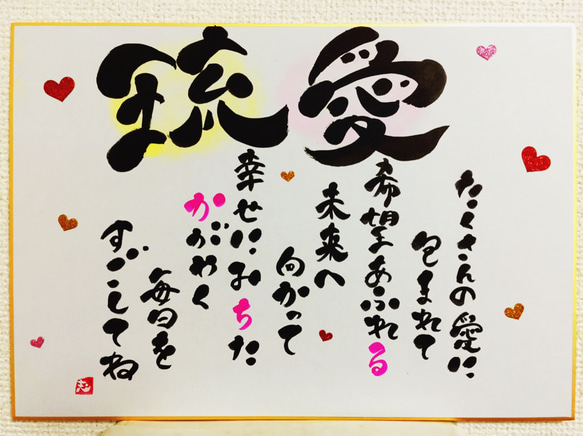 愛琉
たくさんの愛に
包まれて
希望あふれる
未来へ
向かって
幸せにみちた
かがやく
毎日を
すごしてね